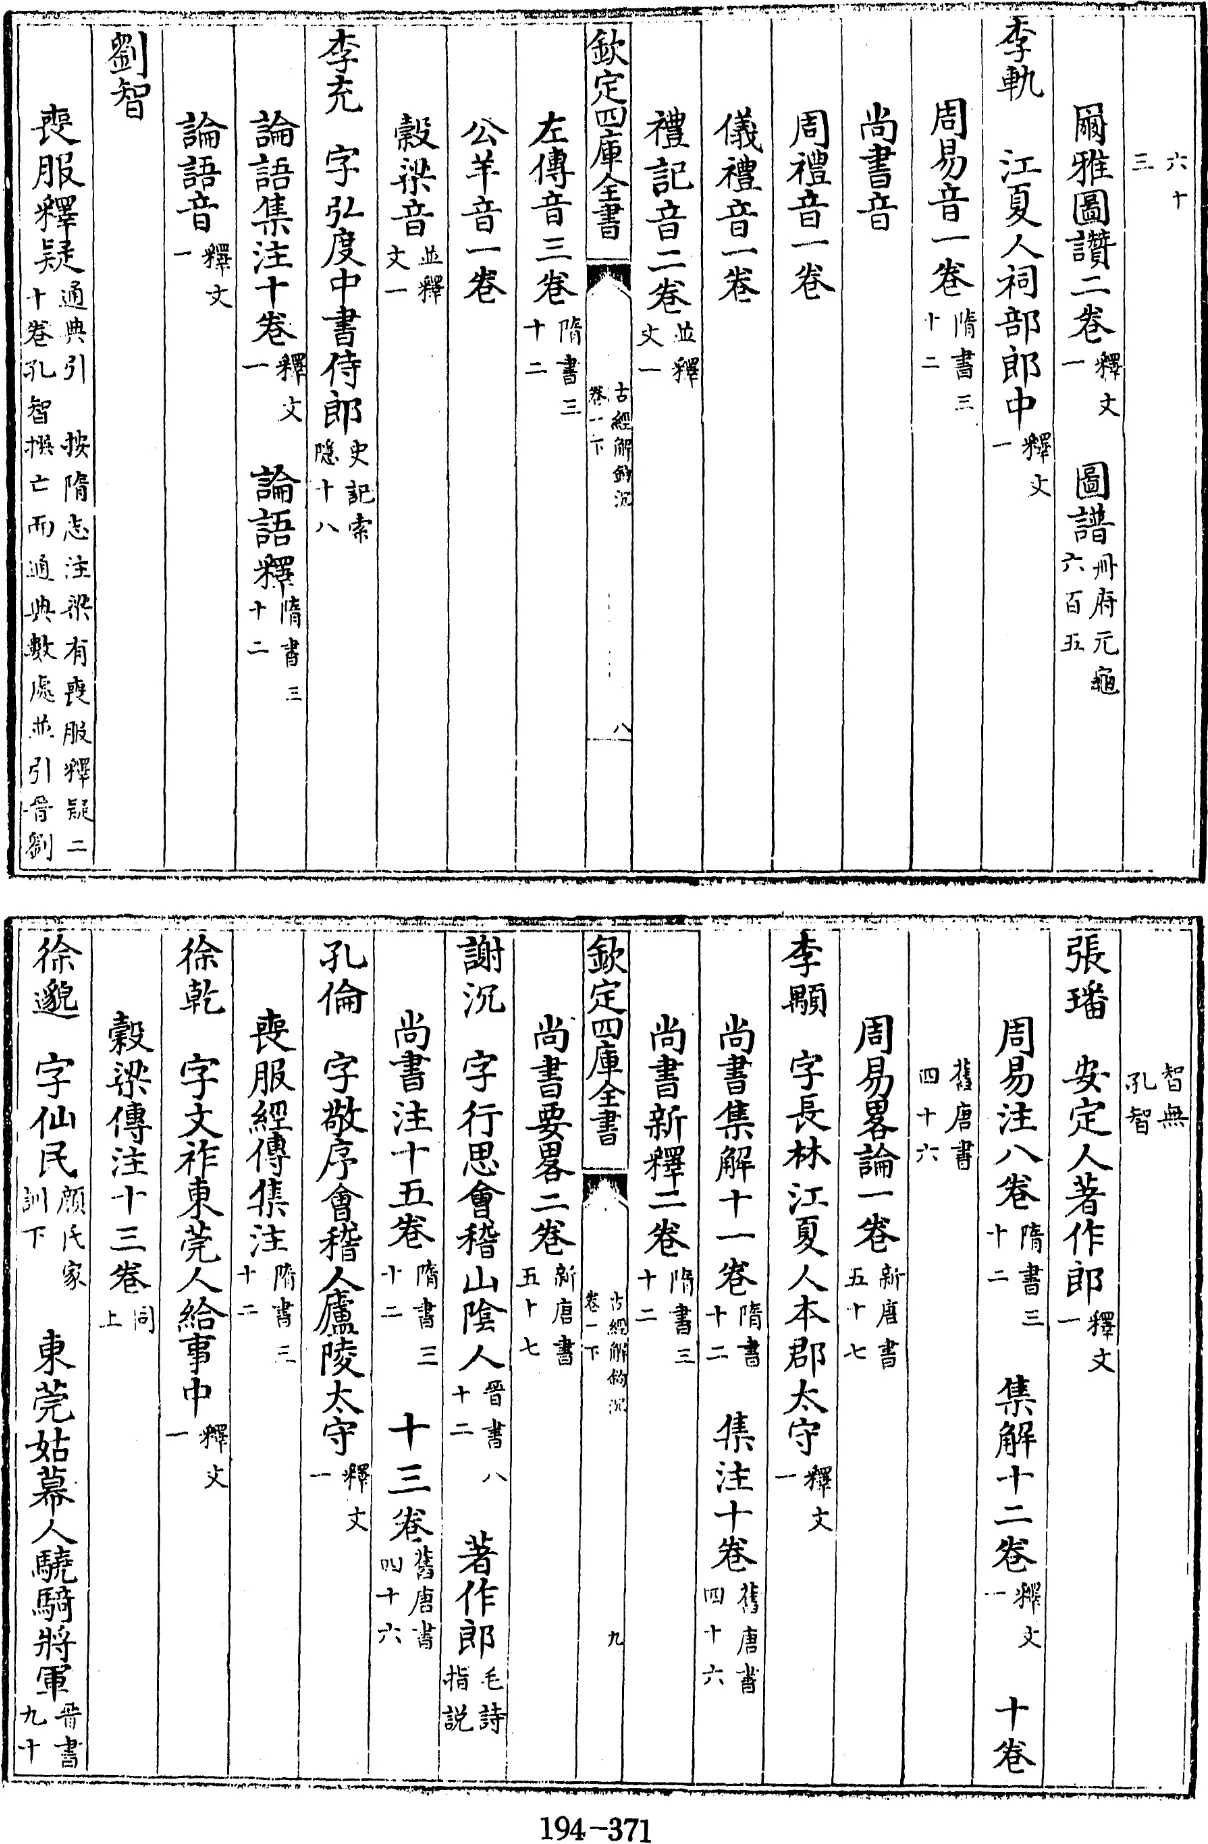 六十三
爾雅圖讚二卷釋文一　圖譜冊府元龜六百五
李軌　江夏人祠部郎中釋文一
周易音一卷隋書三十二
尚書音
周禮音一卷
儀禮音一卷
禮記音二卷並釋文一
欽定四庫全書　古經解鉤沉卷一下　八
左傳音三卷隋書三十二
公羊音一卷
穀梁音並釋文一
李充　字弘度中書侍郎史記索隱十八
論語集注十卷釋文一　論語釋隋書三十二
論語音釋文一
劉智
喪服釋疑通典引　按隋志注梁有喪服釋疑二十卷孔智撰亡而通典數處並引晉劉
智無孔智
張璠　安定人著作郎釋文一
周易注八卷隋書三十二　集解十二卷釋文一　十卷
舊唐書四十六
周易畧論一卷新唐書五十七
李顒　字長林江夏人本郡太守釋文一
尚書集解十一卷隋書十二　集注十卷舊唐書四十六
尚書新釋二卷隋書三十二
欽定四庫全書　古經解鉤沉卷一下　九
尚書要畧二卷新唐書五十七
謝沉　字行思會稽山陰人晉書八十二　著作郎毛詩指説
尚書注十五卷隋書三十二　十三卷舊唐書四十六
孔倫　字敬序會稽人廬陵太守釋文一
喪服經傳集注隋書三十二
徐乾　字文祚東莞人給事中釋文一
穀梁傳注十三卷同上
徐邈　字仙民顔氏家訓下　東莞姑幕人驍騎將軍晉書九十
194-371